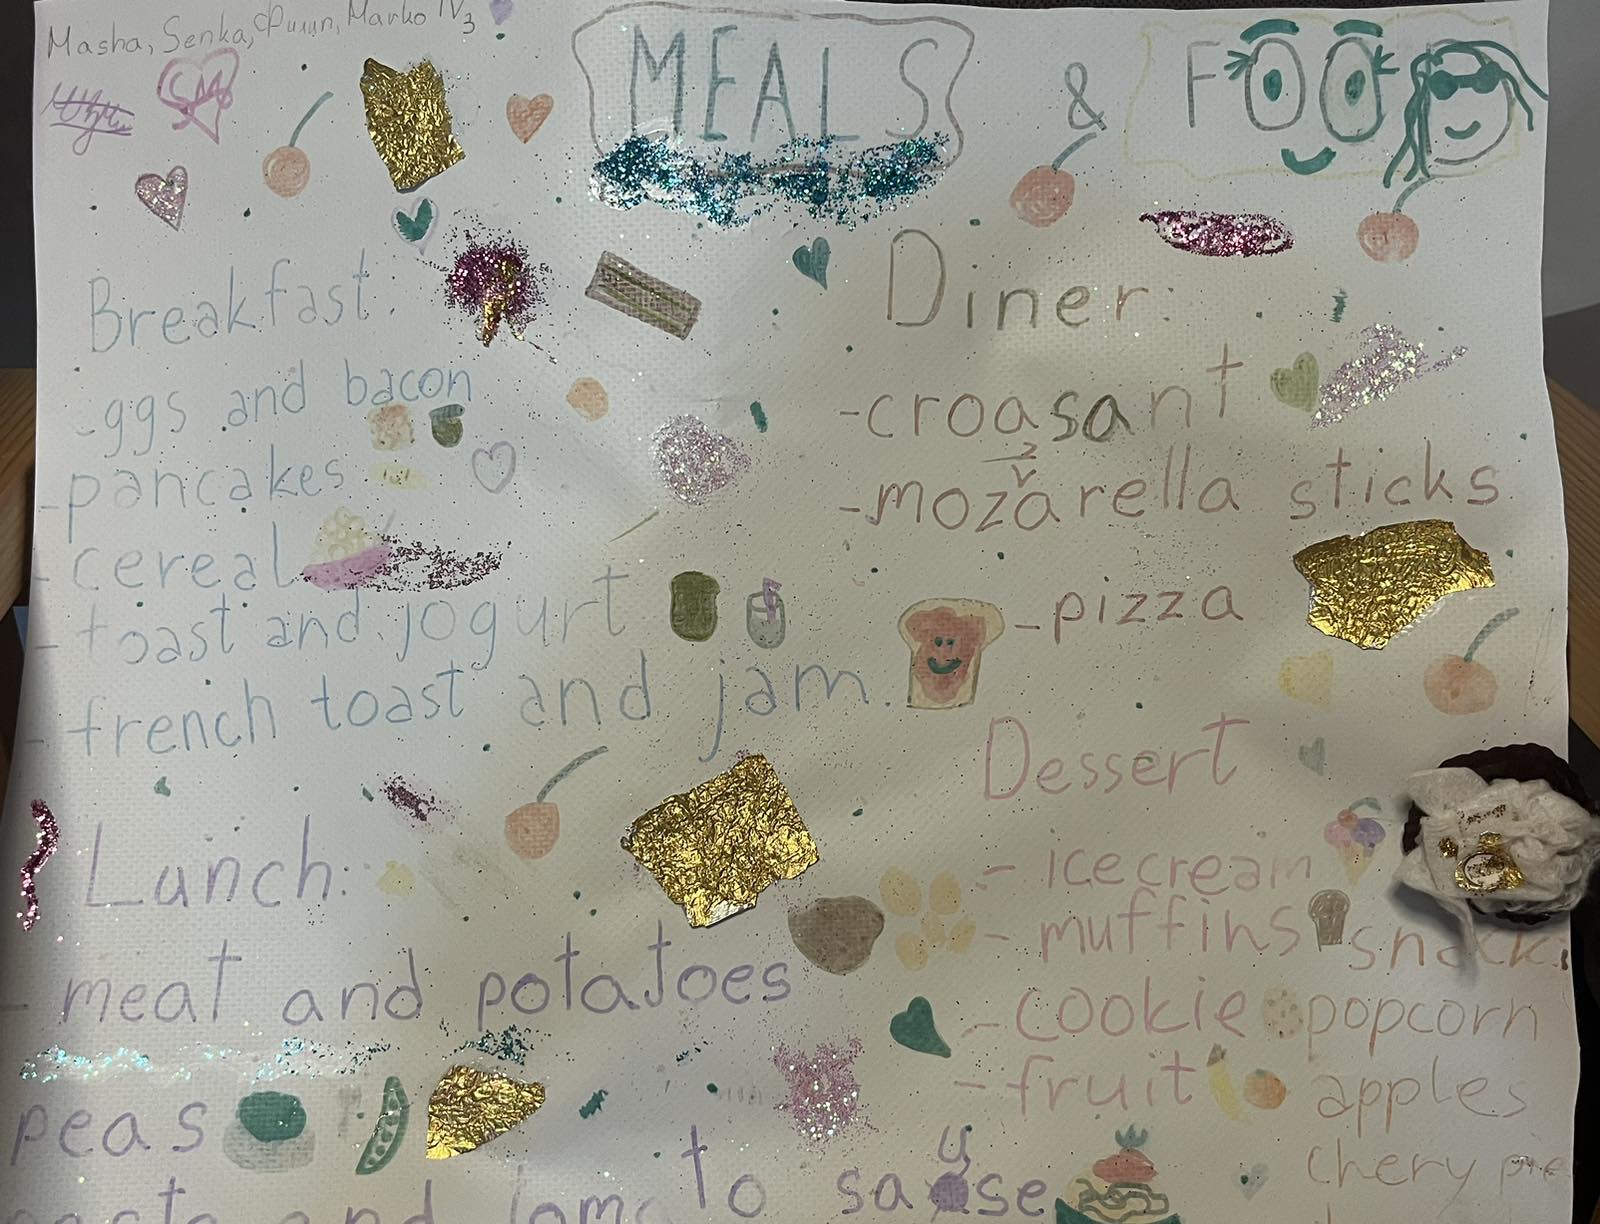 Masha, Senka, Филип, Marko IV3
SM
MEALS & FOOD
Breakfast:
-eggs and bacon
-pancakes
-cereal
-toast and jogurt
-french toast and jam.
Lunch:
-meat and potatoes
peas
to sause
u
Diner:
-croasant
-mozarella sticks
-pizza
Dessert
-icecream
-muffins
-cookie
-fruit
snack
popcorn
apples
chery pie